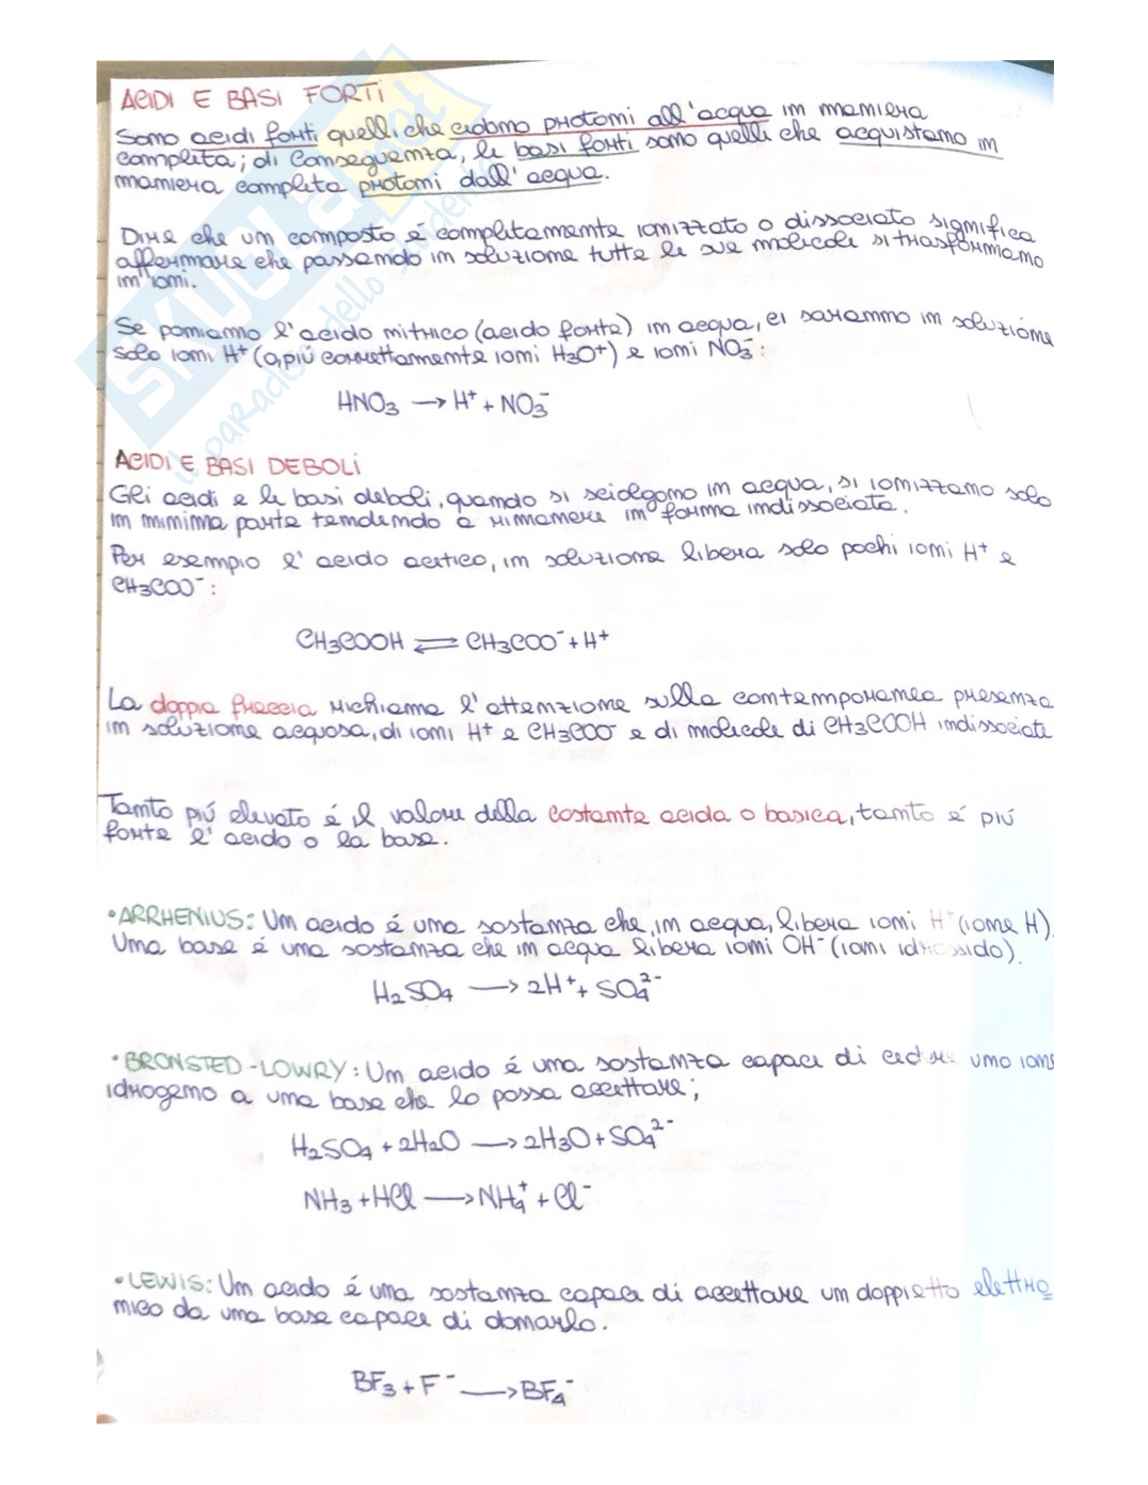 ACIDI E BASI FORTI
Sono acidi forti quelli che cedono protoni all'acqua in maniera
completa; di conseguenza, le basi forti sono quelli che acquistano in
maniera completa protoni dall'acqua.
Dire che un composto é completamente ionizzato o dissociato significa
affermare che passando in soluzione tutte le sue molecole si trasformano
in ioni.
Se poniamo l'acido nitrico (acido forte) in acqua, ci saranno in soluzione
solo ioni H⁺ (o, piú correttamente ioni H3O⁺) e ioni NO3⁻:
HNO3 → H⁺ + NO3⁻
ACIDI E BASI DEBOLI
Gli acidi e le basi deboli, quando si sciolgono in acqua, si ionizzano solo
in minima parte tendendo a rimanere in forma indissociata.
Per esempio l'acido acetico, in soluzione libera solo pochi ioni H⁺ e
CH3COO⁻:
CH3COOH ⇌ CH3COO⁻ + H⁺
La doppia freccia richiama l'attenzione sulla contemporanea presenza
in soluzione acquosa, di ioni H⁺ e CH3COO⁻ e di molecole di CH3COOH indissociate
Tanto piú elevato é il valore della costante acida o basica, tanto é piú
forte l'acido o la base.
•ARRHENIUS: Un acido é una sostanza che, in acqua, libera ioni H⁺ (ione H).
Una base é una sostanza che in acqua libera ioni OH⁻ (ioni idrossido).
H2SO4 → 2H⁺ + SO4²⁻
•BRONSTED-LOWRY: Un acido é una sostanza capace di cedere uno ione
idrogeno a una base che lo possa accettare;
H2SO4 + 2H2O → 2H3O + SO4²⁻
NH3 + HCl → NH4⁺ + Cl⁻
•LEWIS: Un acido é una sostanza capace di accettare un doppietto elettro
nico da una base capace di donarlo.
BF3 + F⁻ → BF4⁻
SKUOLA.net
il paradiso dello studente